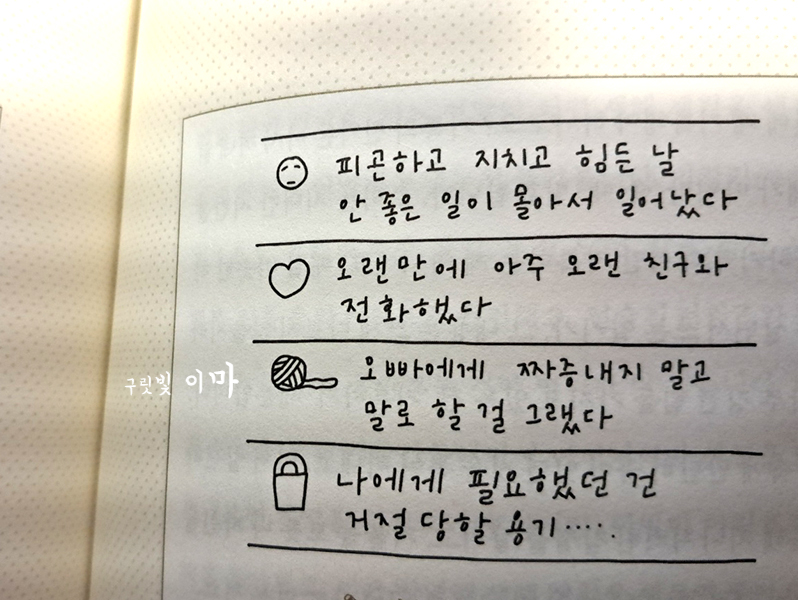 피곤하고 지치고 힘든 날
안 좋은 일이 몰아서 일어났다
오랜만에 아주 오랜 친구와
전화했다
오빠에게 짜증내지 말고
말로 할 걸 그랬다
나에게 필요했던 건
거절 당할 용기·····
구릿빛 이마